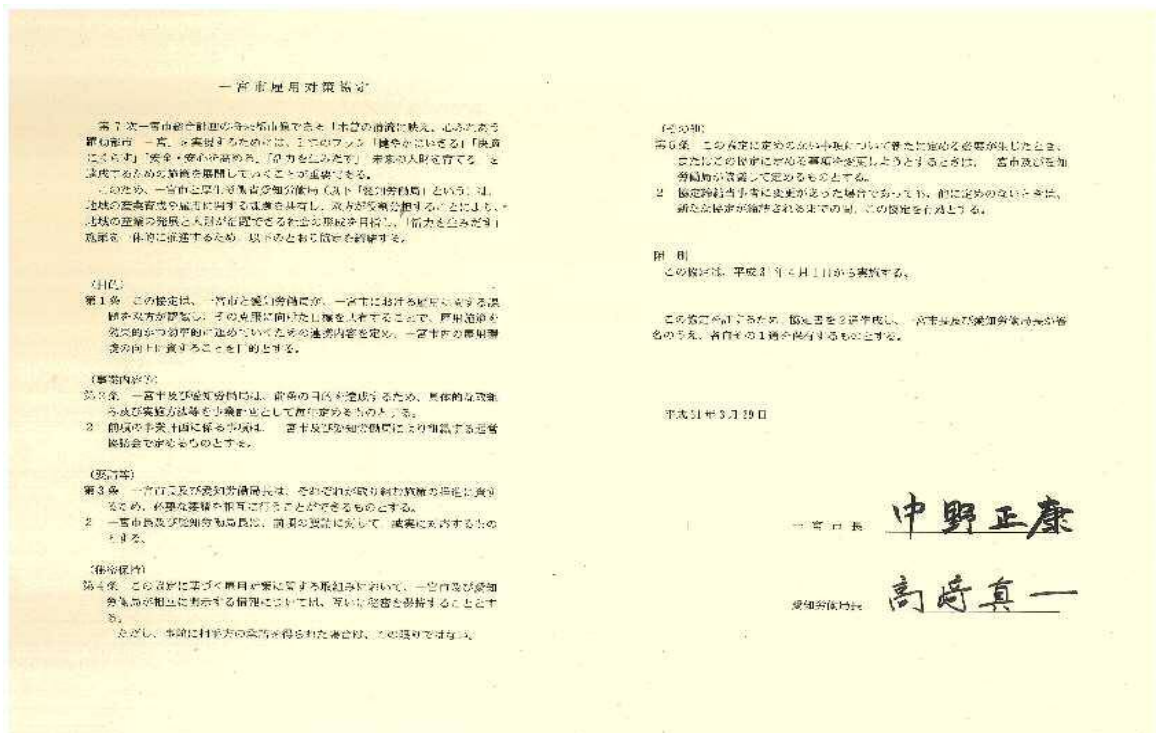 一宮市雇用対策協定
第7次一宮市総合計画の将来都市像である「木曽の清流に映え、心ふれあう
躍動都市 一宮」を実現するためには、5つのプラン「健やかにいきる」「快適
にくらす」「安全・安心を高める」「活力を生みだす」「未来の人財を育てる」を
達成するための施策を展開していくことが重要である。
このため、一宮市と厚生労働省愛知労働局（以下「愛知労働局」という）は、
地域の産業育成や雇用に関する課題を共有し、双方が役割分担することにより、
地域の産業の発展と人財が活躍できる社会の形成を目指し、「活力を生みだす」
施策を一体的に推進するため、以下のとおり協定を締結する。
（目的）
第1条 この協定は、一宮市と愛知労働局が、一宮市における雇用に関する課
題を双方が認識し、その克服に向けた目標を共有することで、雇用施策を
効果的かつ効率的に進めていくための連携内容を定め、一宮市内の雇用環
境の向上に資することを目的とする。
（事業内容等）
第2条 一宮市及び愛知労働局は、前条の目的を達成するため、具体的な取組
み及び実施方法等を事業計画として毎年定めるものとする。
2 前項の事業計画に係る事項は、一宮市及び愛知労働局により組織する運営
協議会で定めるものとする。
（要請等）
第3条 一宮市長及び愛知労働局長は、それぞれが取り組む施策の推進に資す
るため、必要な要請を相互に行うことができるものとする。
2 一宮市長及び愛知労働局長は、前項の要請に対して、誠実に対応するもの
とする。
（秘密保持）
第4条 この協定に基づく雇用対策に関する取組みにおいて、一宮市及び愛知
労働局が相互に開示する情報については、互いに秘密を保持することとす
る。
ただし、事前に相手方の承諾を得られた場合は、この限りではない。
（その他）
第5条 この協定に定めのない事項について新たに定める必要が生じたとき、
またはこの協定に定める事項を変更しようとするときは、一宮市及び愛知
労働局が協議して定めるものとする。
2 協定締結当事者に変更があった場合であっても、他に定めのないときは、
新たな協定が締結されるまでの間、この協定を有効とする。
附 則
この協定は、平成31年4月1日から実施する。
この協定を証するため、協定書を2通作成し、一宮市長及び愛知労働局長が署
名のうえ、各自その1通を保有するものとする。
平成31年3月29日
一宮市長 中野正康
愛知労働局長 高﨑真一